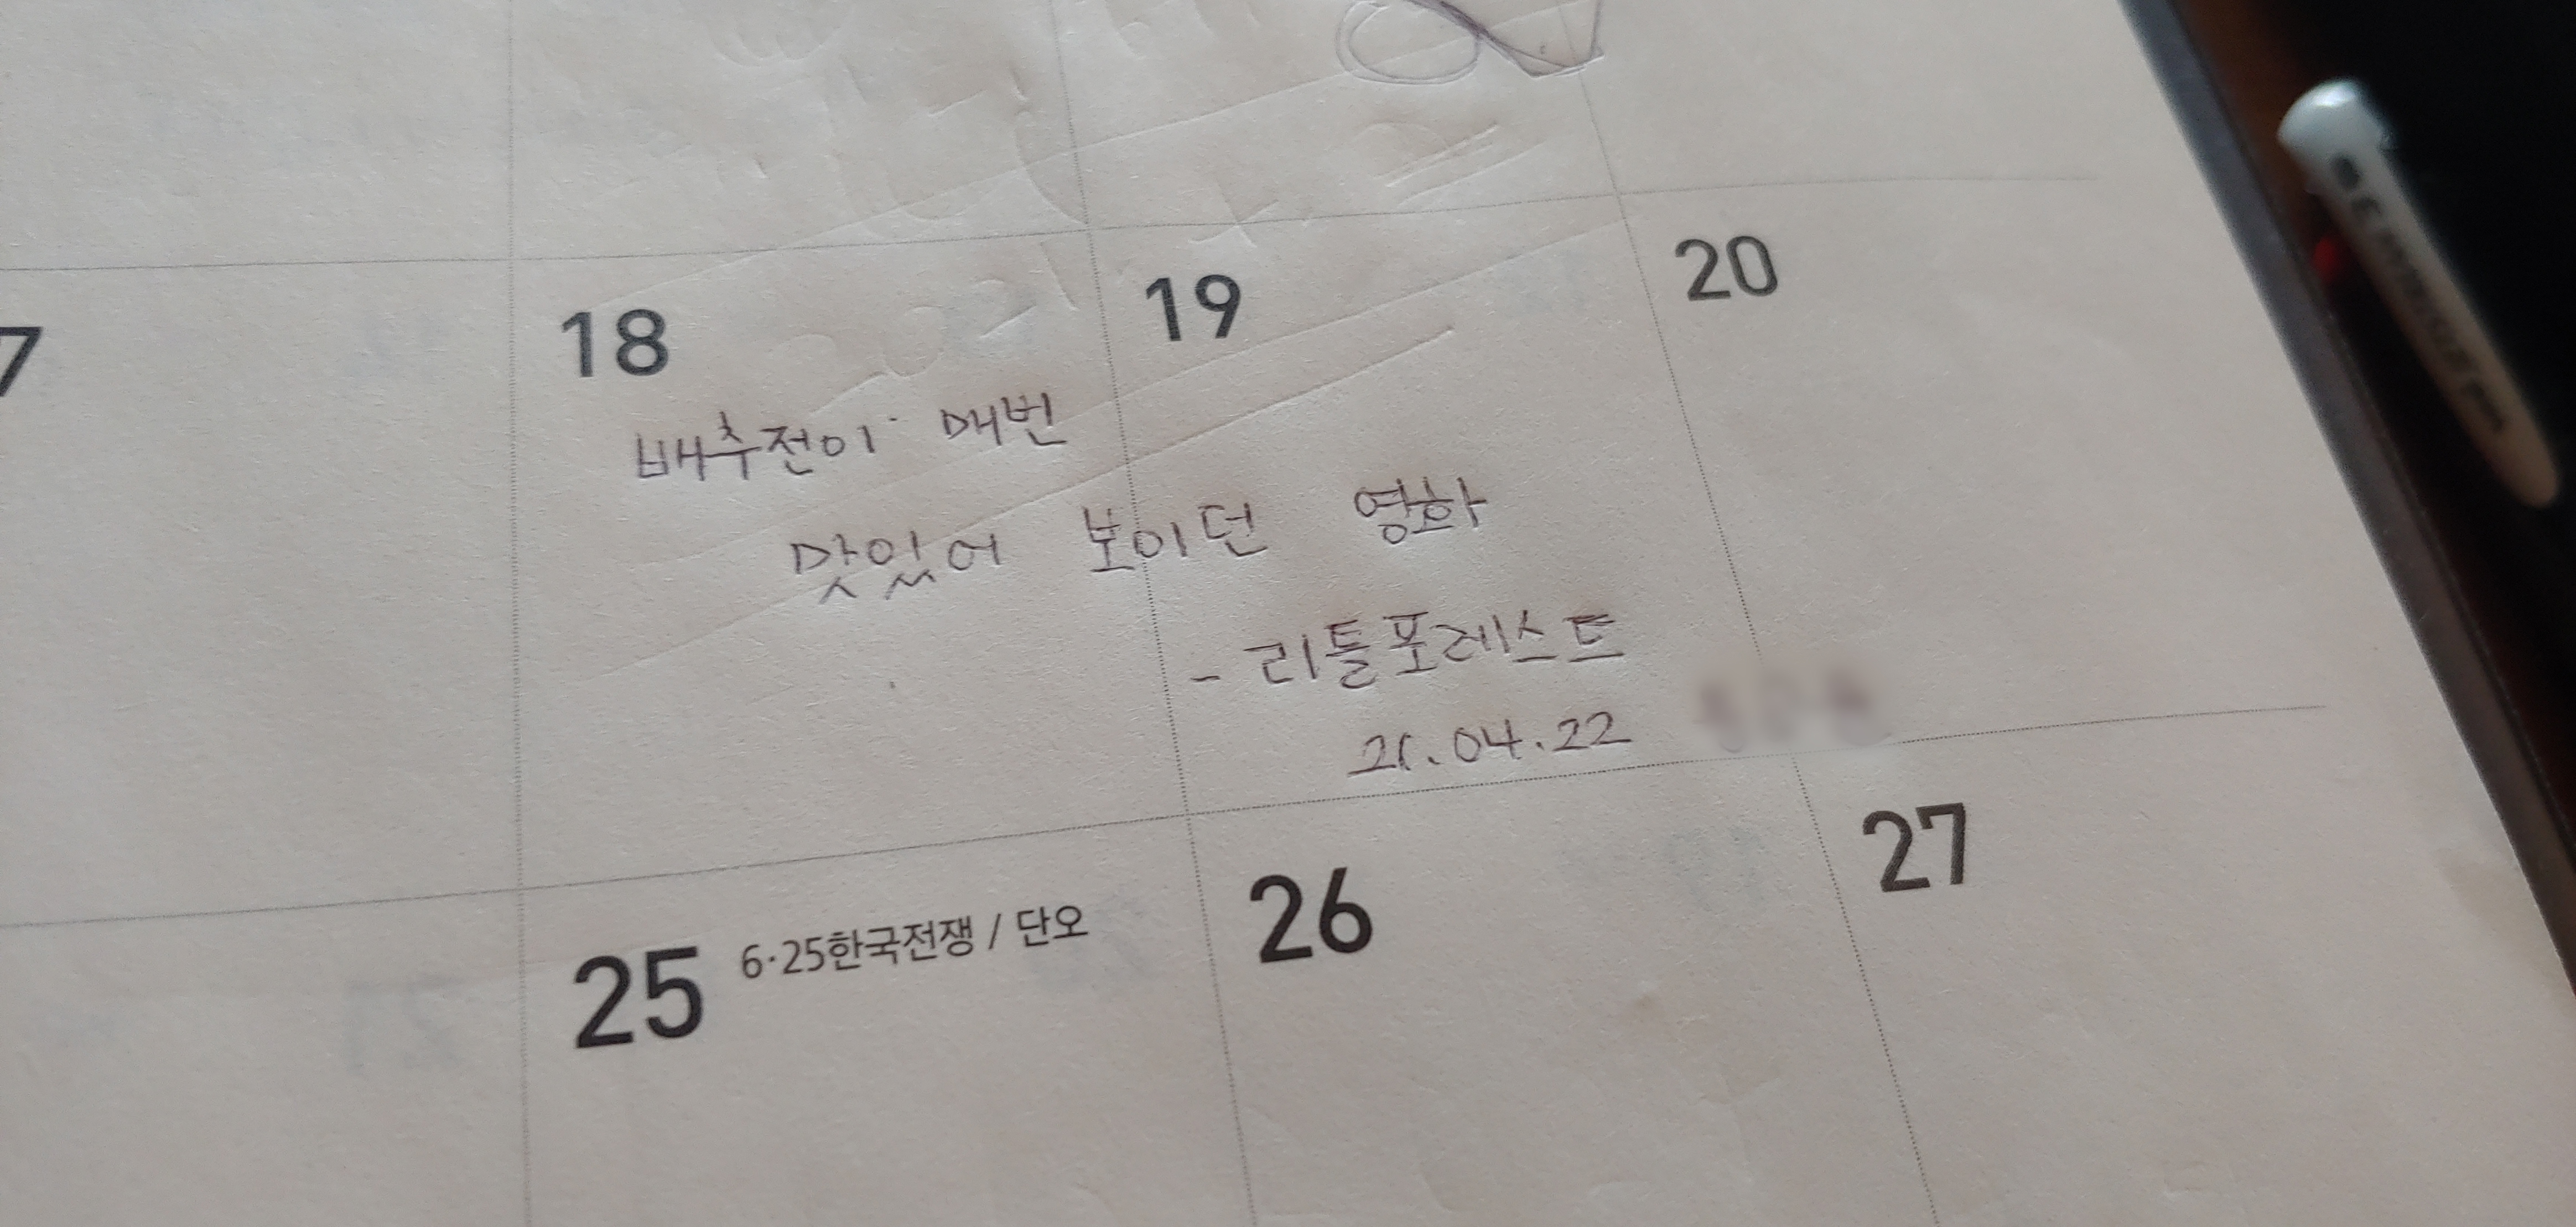 7
18
19
20
배추전이 매번
맛있어 보이던 영화
- 리틀포레스트
21.04.22
25 6·25한국전쟁 / 단오
26
27